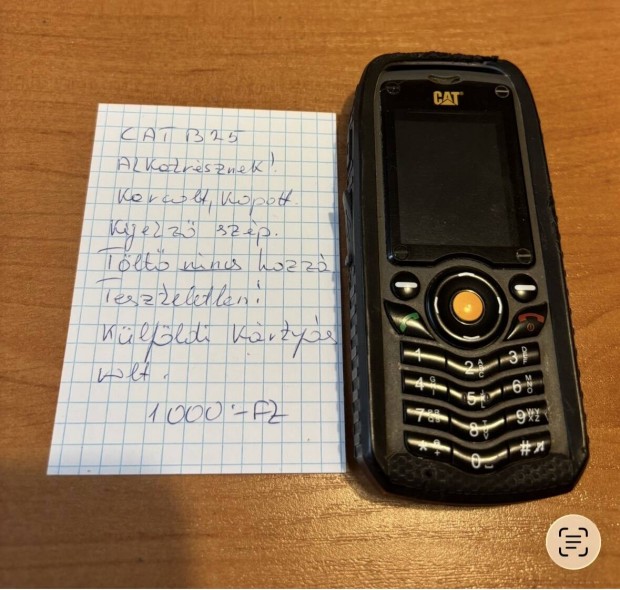 CAT B25
Alkatrésznek!
Karcolt, kopott.
Kijelző szép.
Töltő nincs hozzá
Teszteletlen!
Külföldi kártyás
volt.
1000.-Ft
CAT
1
2 ABC
3 DEF
4 GHI
5 JKL
6 MNO
7 PQRS
8 TUV
9 WXYZ
*
0
#